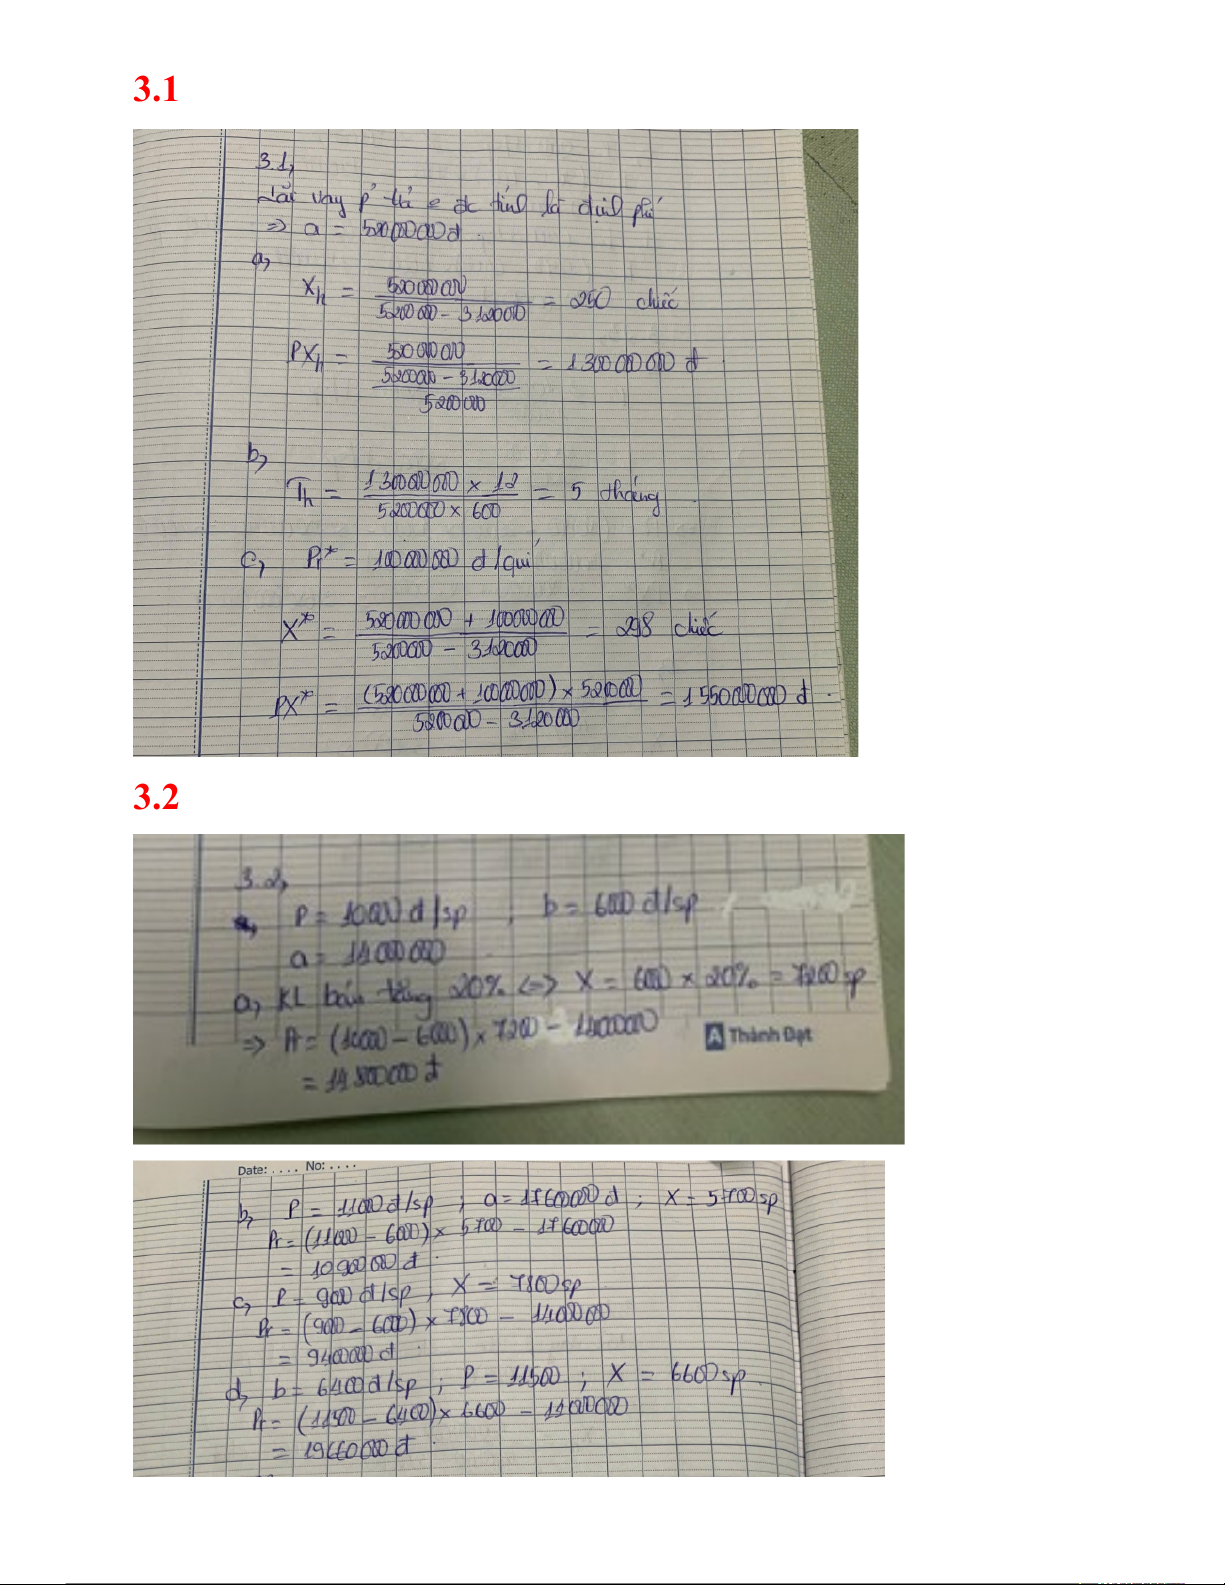 3.1
3.1,
Lãi vay p trả e đc tính là định phí
⇒ a = 520000000đ
a,
Xh = 520000000 / (5200000 - 3120000) = 250 chiếc
PXh = 520000000 / ((5200000 - 3120000) / 5200000) = 1300000000 đ
b,
Th = (1300000000 × 12) / (5200000 × 600) = 5 tháng
c, Pr* = 100000000 đ/quí
X* = (520000000 + 100000000) / (5200000 - 3120000) = 298 chiếc
PX* = ((520000000 + 100000000) × 5200000) / (5200000 - 3120000) = 1550000000 đ.
3.2
3.2,
P = 10000 đ/sp ; b = 6000 đ/sp
a = 14000000
a, KL bán tăng 20% <=> X = 6000 × 20% = 7200 sp
⇒ Pr = (10000 - 6000) × 7200 - 14000000
= 14800000 đ
A Thành Đạt
Date: .... No: ....
b, P = 11000 đ/sp ; a = 17600000 đ ; X = 5700 sp
Pr = (11000 - 6000) × 5700 - 17600000
= 10900000 đ.
c, P = 9000 đ/sp ; X = 7800 sp
Pr = (9000 - 6000) × 7800 - 14000000
= 9400000 đ.
d, b = 6400 đ/sp ; P = 11500 ; X = 6600 sp.
Pr = (11500 - 6400) × 6600 - 14000000
= 19660000 đ.